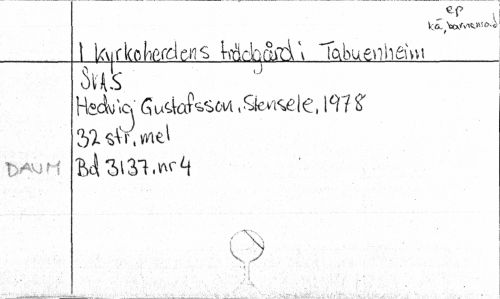 ep
kä, barnensord
I kyrkoherdens trädgård i Tabuenheim
SVAS
Hedvig Gustafsson, Stensele, 1978
32 str, mel
DAUM Bd 3137, nr 4